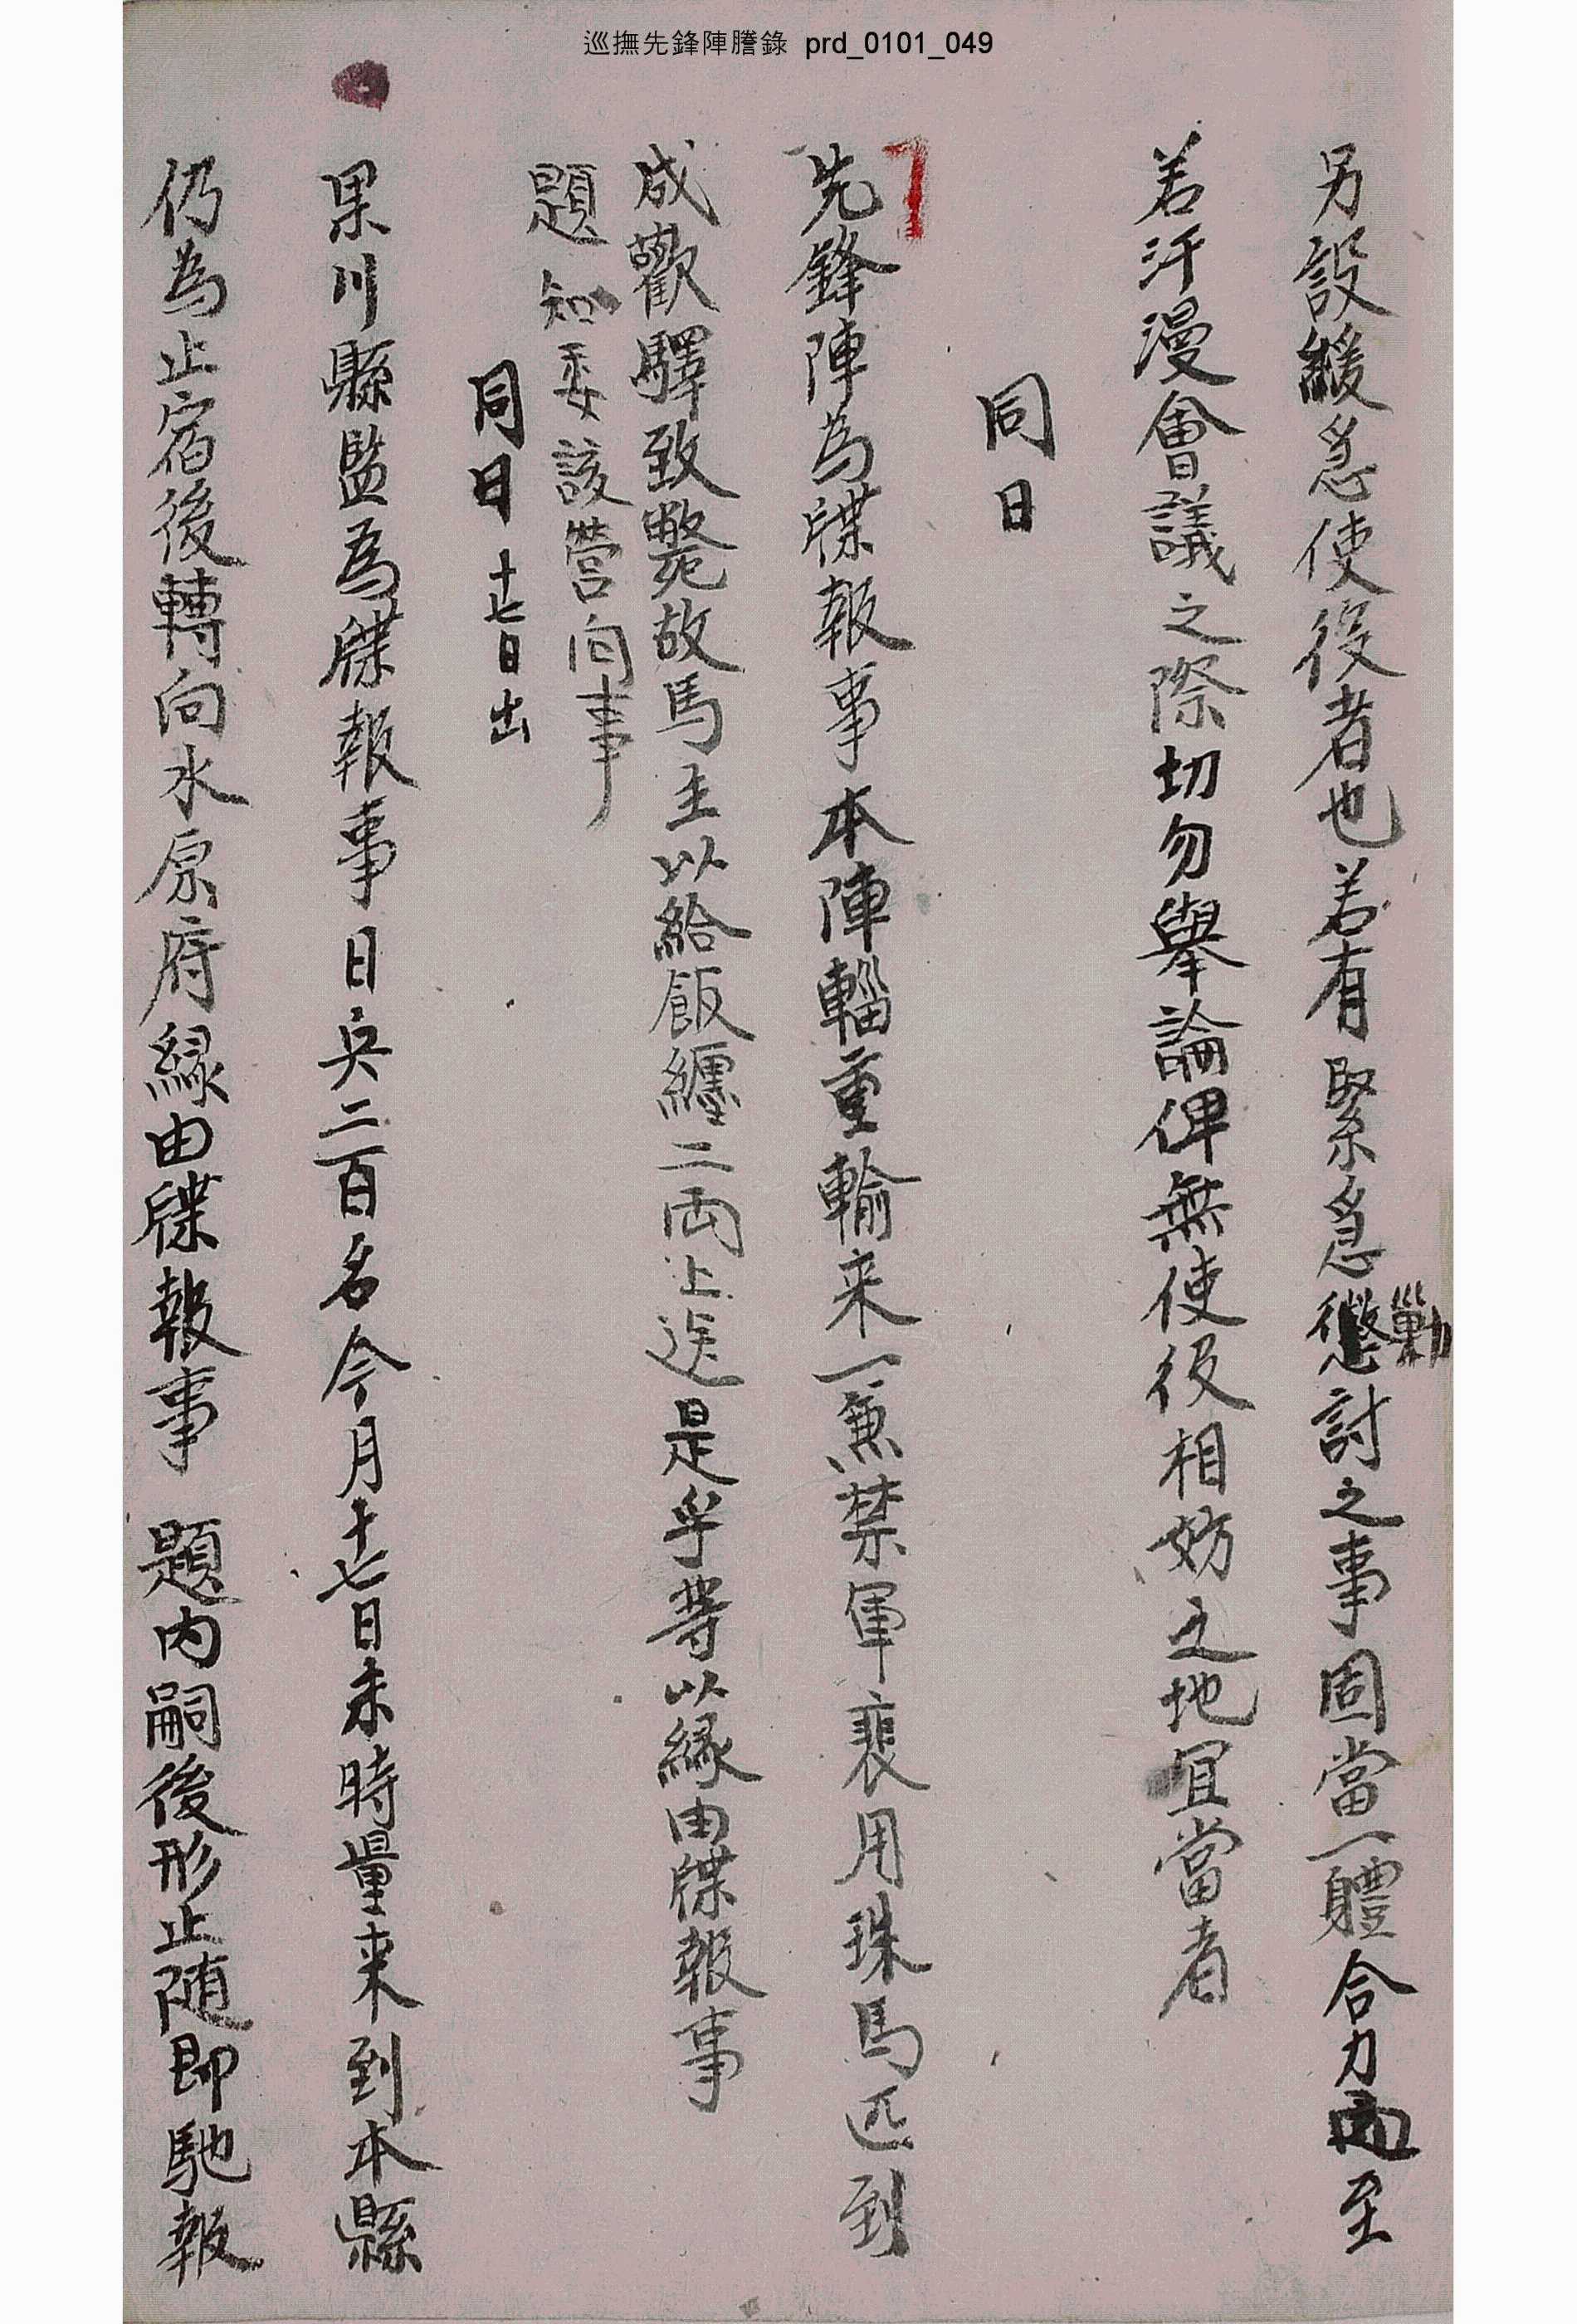 巡撫先鋒陣謄錄 prd_0101_049
另設緩急使役者也若有緊急懲勦討之事固當一軆合力而至
若汗漫會議之際切勿擧論俾無使役相妨之地宜當者
同日
先鋒陣爲牒報事本陣輜重輸来一兼禁軍裵用珠馬匹到
成歡驛致斃故馬主以給飯纏二両上送是乎等以緣由牒報事
題知委該營向事
同日十七日出
果川縣監爲牒報事日兵二百名今月十七日未時量来到本縣
仍爲止宿後轉向水原府緣由牒報事 題内嗣後形止随即馳報